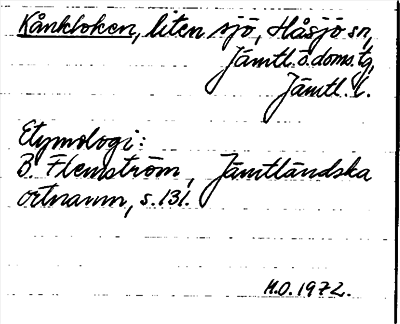 Kånkloken, liten sjö, Håsjö sn,
Jämtl. ö. doms. tg,
Jämtl. l.
Etymologi:
B. Flemström, Jämtländska
ortnamn, s. 131.
M.O. 1972.